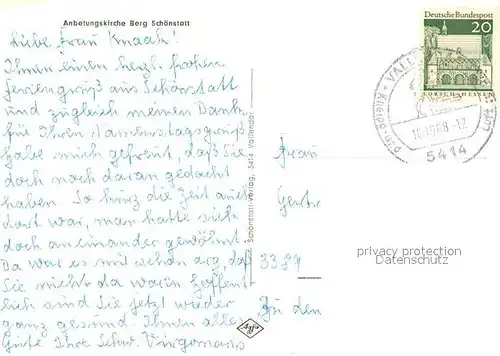 Anbetungskirche Berg Schönstatt
Liebe Frau Knaak!
Ihnen einen herzl. frohen
Feriengruß aus Schönstatt
und zugleich meinen Dank
für Ihren Namenstagsgruß
habe mich gefreut, daß Sie
doch noch daran gedacht
haben. So kurz die Zeit auch
dort war, man hatte sich
doch aneinander gewöhnt.
Da war es mir schon arg, daß
Sie nicht da waren hoffent-
lich sind Sie jetzt wieder
ganz gesund. Ihnen alles
Gute Ihre Schw.
Schönstatt-Verlag, 5414 Vallendar
Agfa
Deutsche Bundespost
20
LORSCH·HESSEN
VALLENDAR
5414
Frau
3389
Zu den
privacy protection
Datenschutz